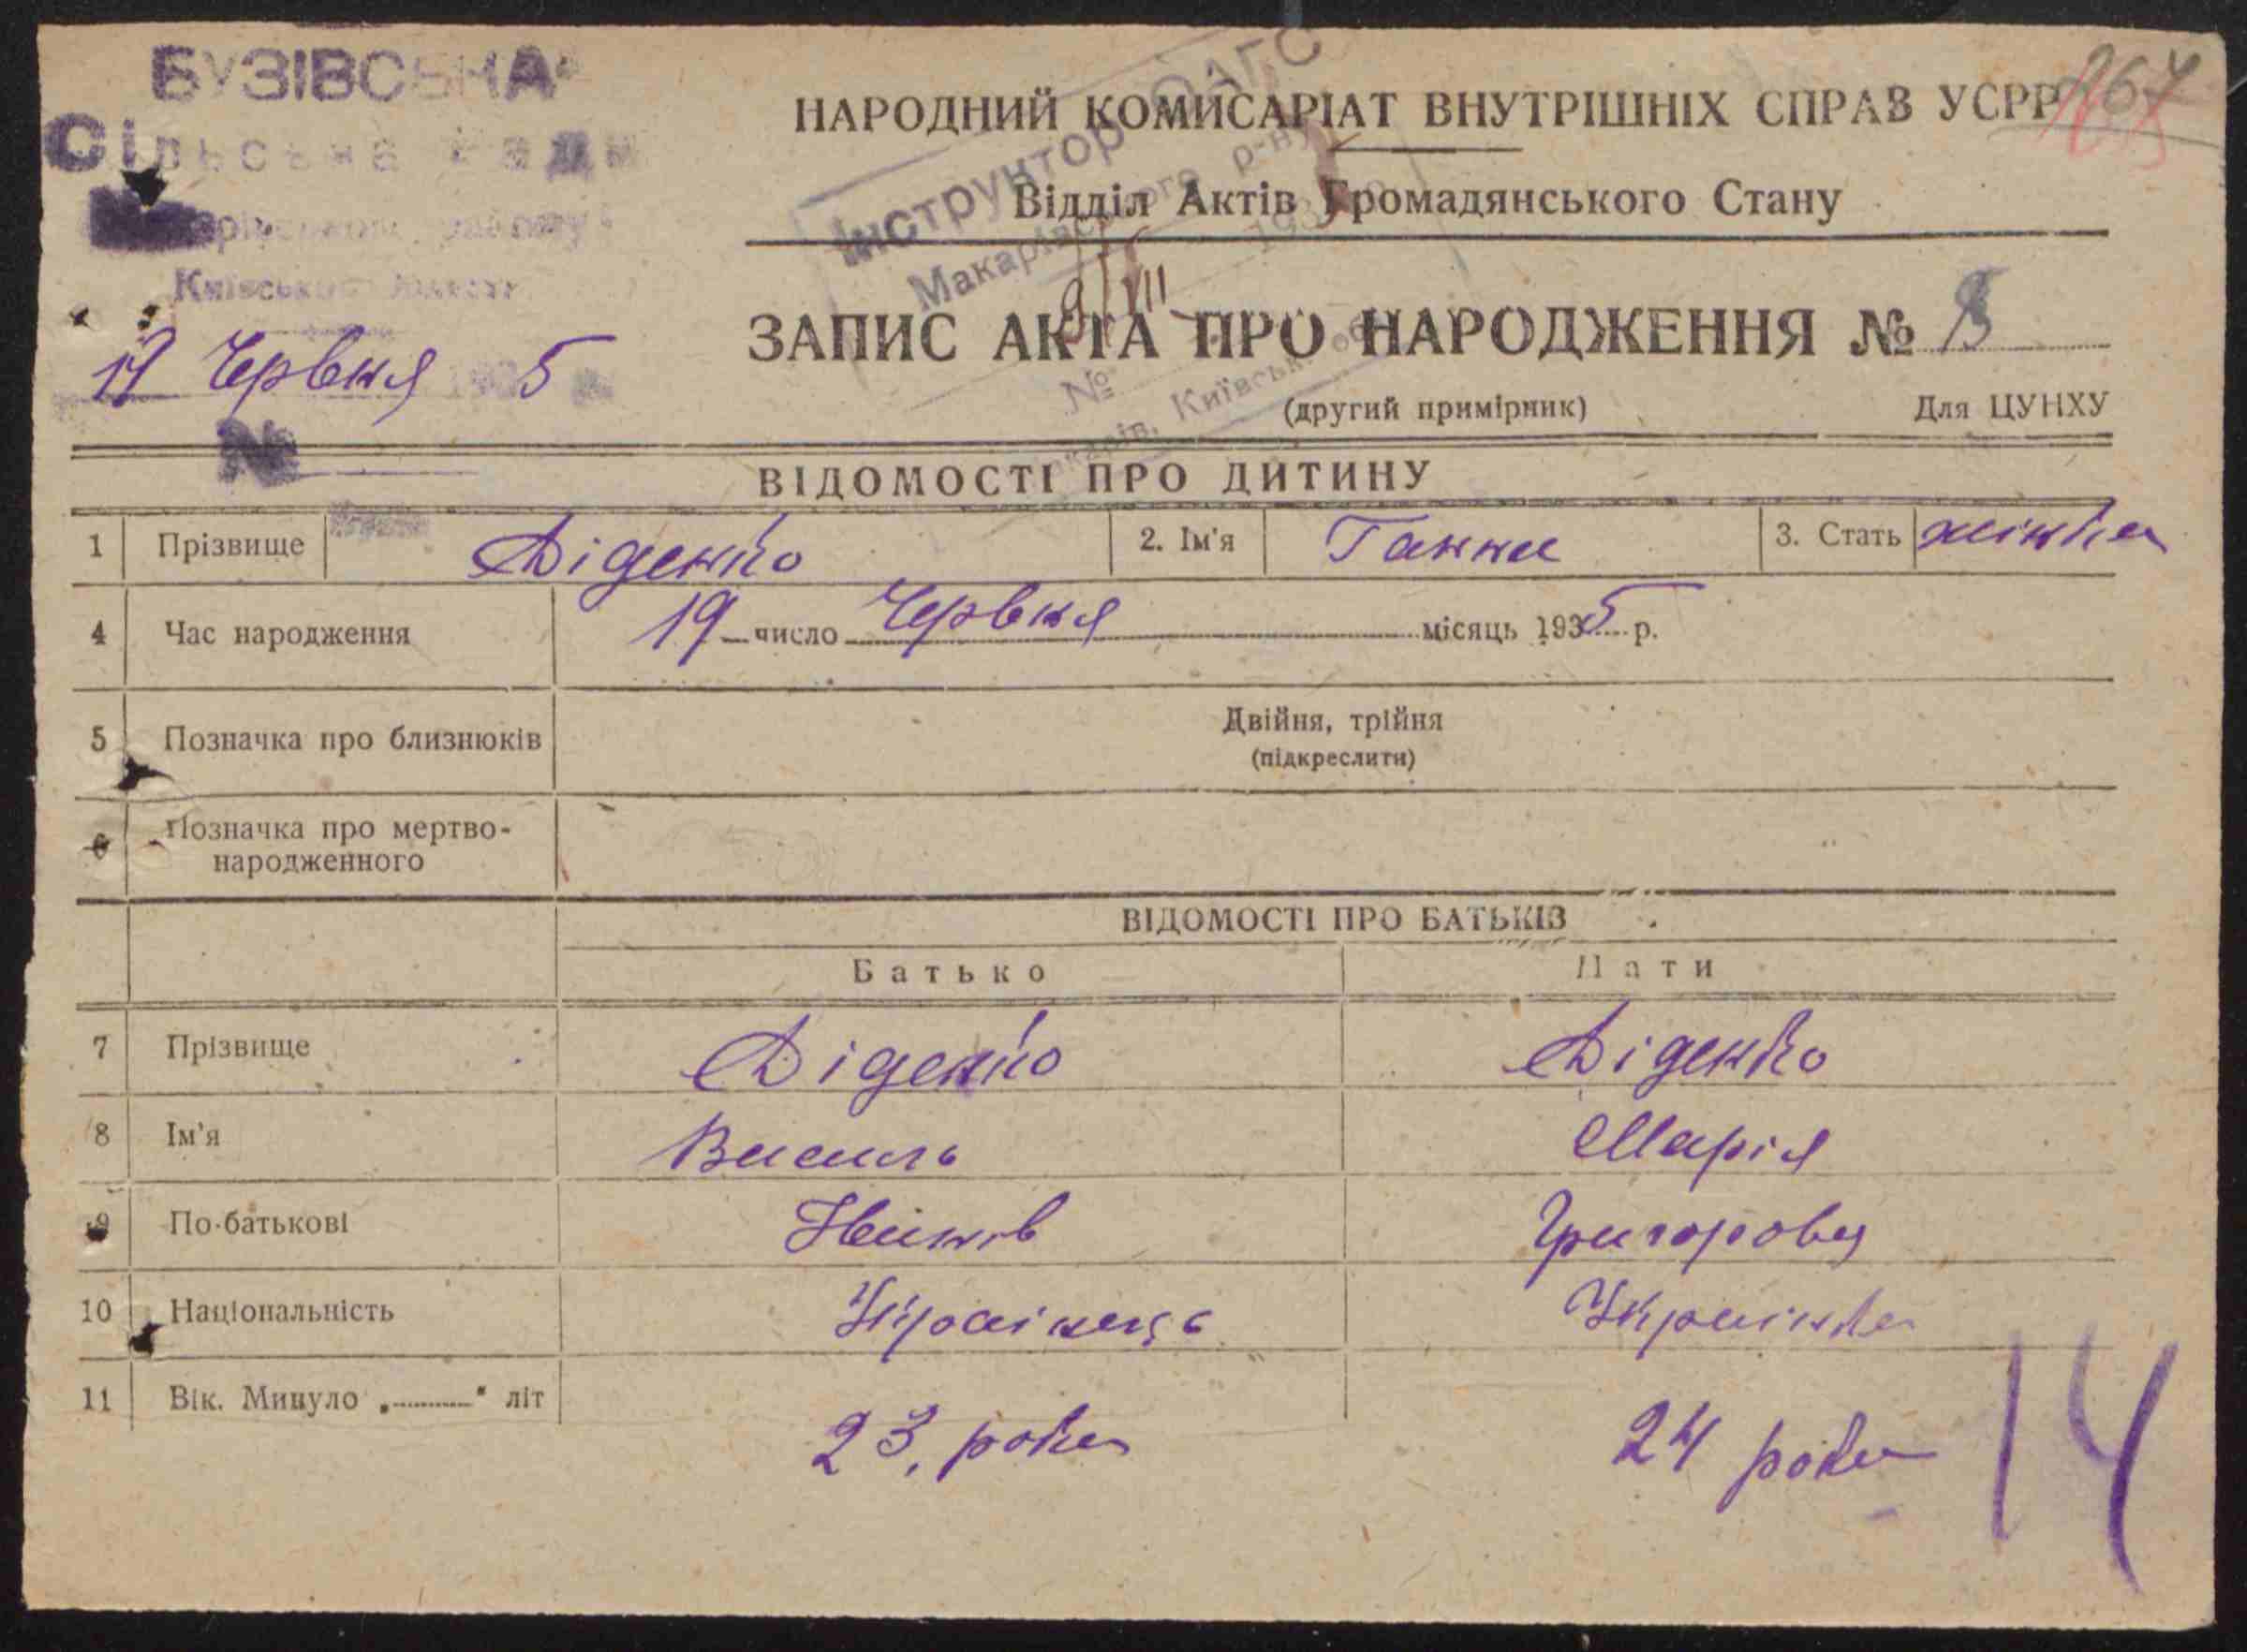 БУЗІВСЬКА
СІЛЬСЬКА РАДА
району
Київської області
19 Червня 1935
№
Інструктор ОАГС
Макарівського р-ну
9/VII 193
№
Київськ.
НАРОДНИЙ КОМИСАРІАТ ВНУТРІШНІХ СПРАВ УСРР
Відділ Актів Громадянського Стану
ЗАПИС АКТА ПРО НАРОДЖЕННЯ №
(другий примірник) Для ЦУНХУ
ВІДОМОСТІ ПРО ДИТИНУ
1 Прізвище Діденко 2. Ім'я Ганна 3. Стать жінка
4 Час народження 19 число Червня місяць 1935 р.
5 Позначка про близнюків Двійня, трійня
(підкреслити)
6 Позначка про мертво-
народженного
ВІДОМОСТІ ПРО БАТЬКІВ
Батько Мати
7 Прізвище Діденко Діденко
8 Ім'я Василь Марія
9 По-батькові Григоровна
10 Національність Українець Українка
11 Вік. Минуло „ " літ 23, роки 24 роки
14